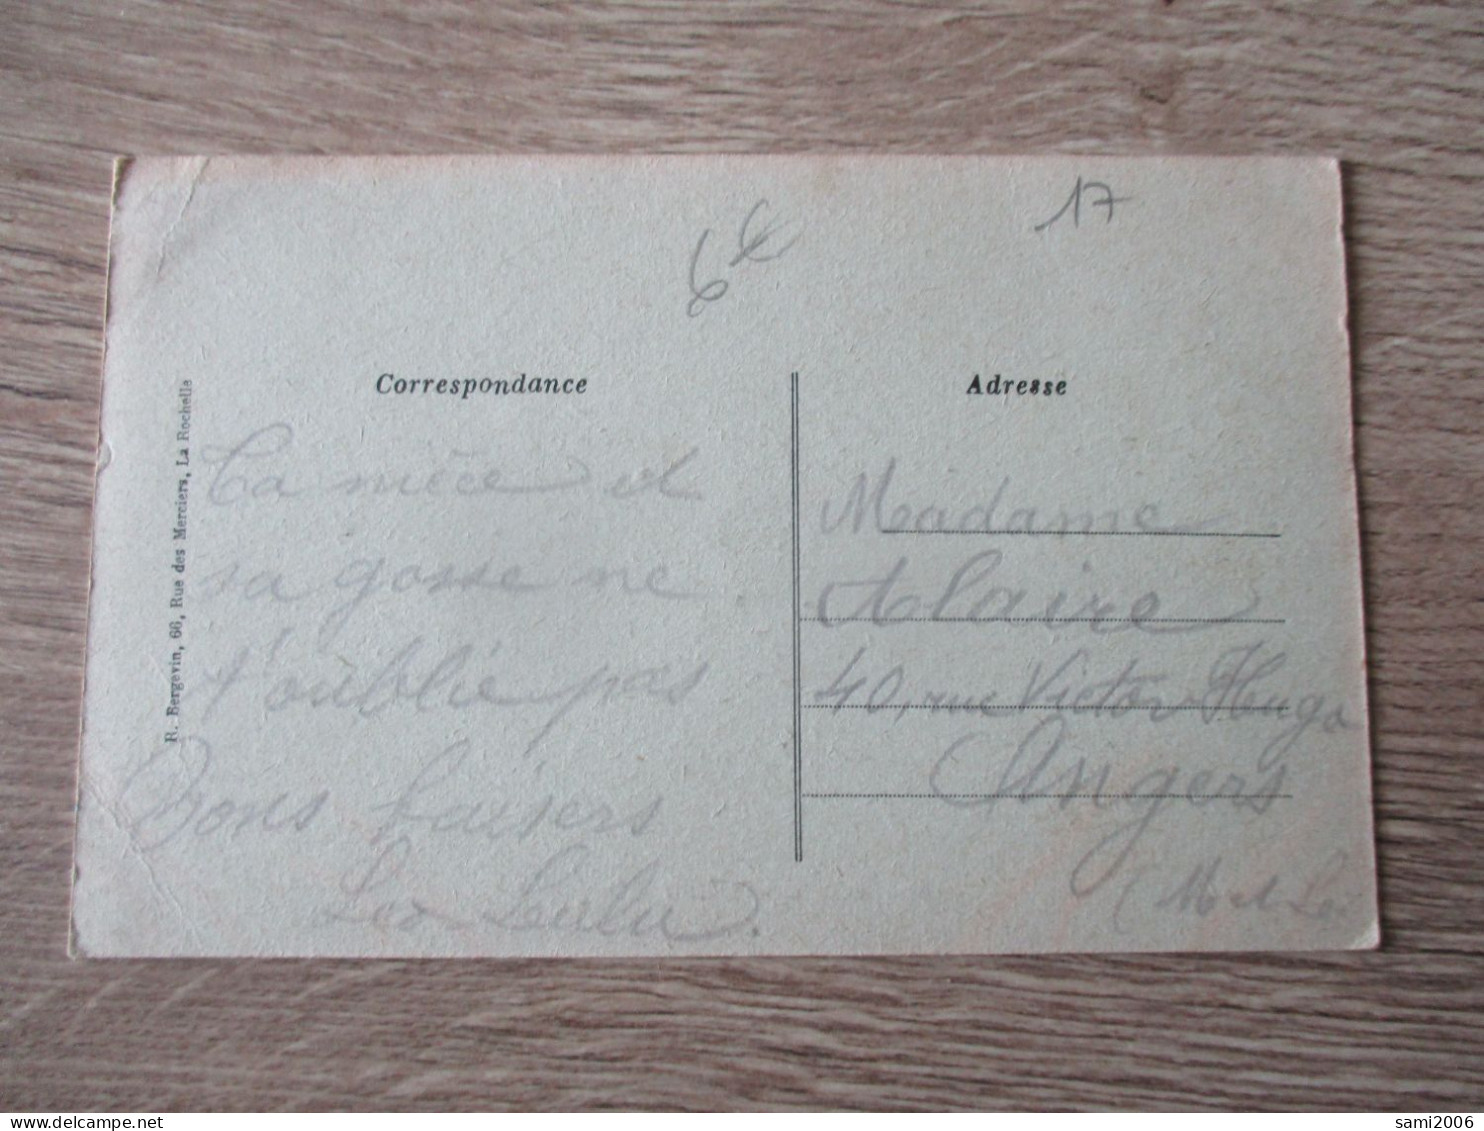 6€
17
Correspondance
Adresse
R. Bergevin, 66, Rue des Merciers, La Rochelle
Ta nièce et
sa gosse ne
t'oublie pas
Bons baisers
Léo Lulu.
Madame
Alaire
40, rue Victor Hugo
Angers
(M et L.)
sami2006